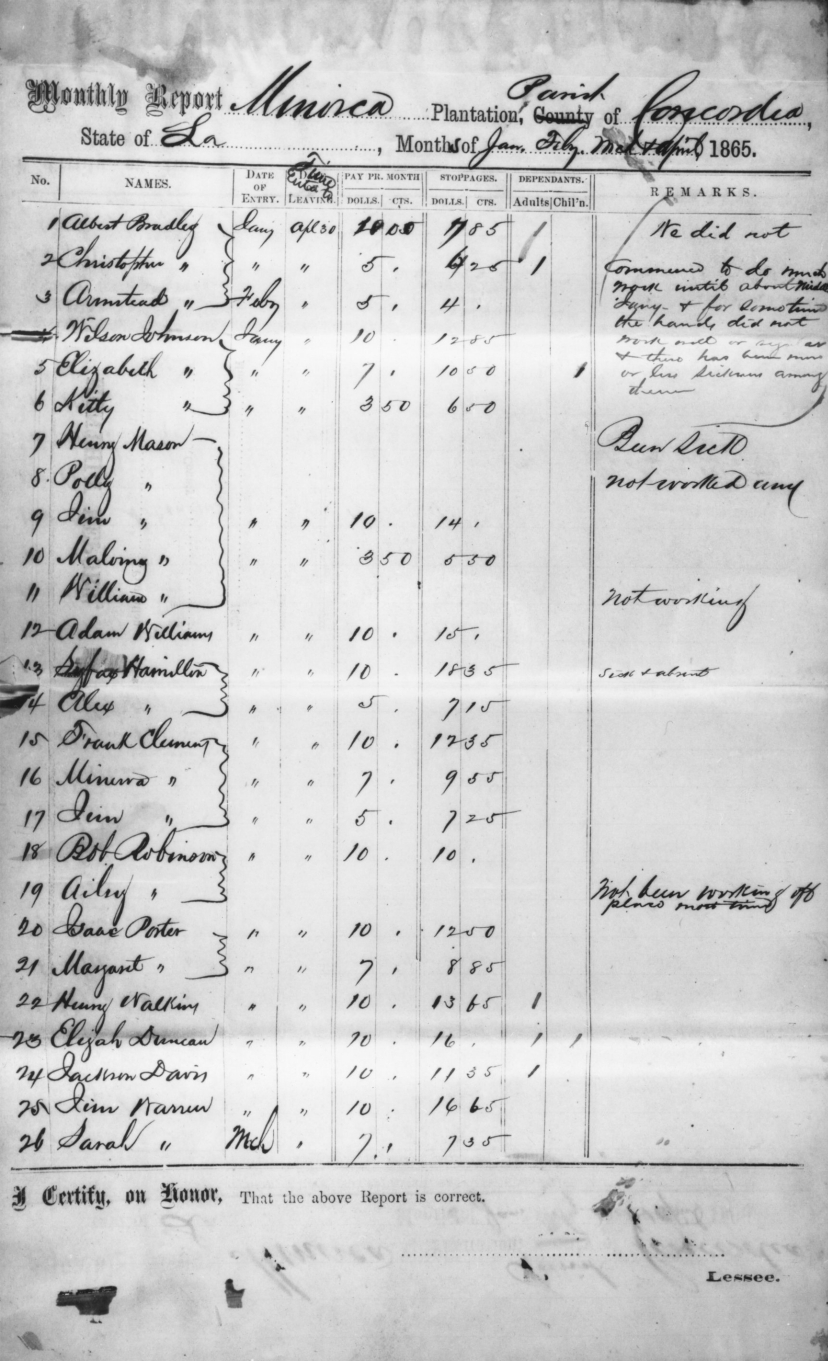 Parish
Monthly Report Minorca Plantation, County of Concordia,
State of La, Months of Jan. Feby. Mch & April, 1865.
No. NAMES. DATE OF ENTRY. Time LEAVING. PAY PR. MONTH DOLLS. CTS. STOPPAGES. DOLLS. CTS. DEPENDANTS. Adults Chil'n. REMARKS.
1 Albert Bradley Jany Apl 30 10 00 7 85 1 He did not
2 Christopher " " " 5 . 6 25 1 commence to do much
work until about
3 Armstead " Feby " 5 . 4 . Jany & for sometime
the hands did not
4 Wilson Johnson Jany " 10 . 12 85 work well or
& there has been more
5 Elizabeth " " " 7 . 10 50 1 or less sickness among
them
6 Kitty " " " 3 50 6 50
7 Henry Mason Been Sick
8. Polly " not worked any
9 Jim " " " 10 . 14 .
10 Malviny " " " 3 50 5 50
11 William " Not working
12 Adam Williams " " 10 . 15 .
13 Hamilton " " 10 . 18 35 Sick & absent
14 Alex " " " 5 . 7 15
15 Frank Clement " " 10 . 12 35
16 Minerva " " " 7 . 9 55
17 Jim " " " 5 . 7 25
18 Bob Robinson " " 10 . 10 .
19 Ailsy " Not been working off
place most time
20 Isaac Porter " " 10 . 12 50
21 Margaret " " " 7 . 8 85
22 Henry Watkins " " 10 . 13 65 1
23 Elijah Duncan " " 10 . 16 . 1 1
24 Jackson Davis " " 10 . 11 35 1
25 Jim Warren " " 10 . 16 65
26 Sarah " Mch " 7 . 7 35
I Certify, on Honor, That the above Report is correct.
Lessee.